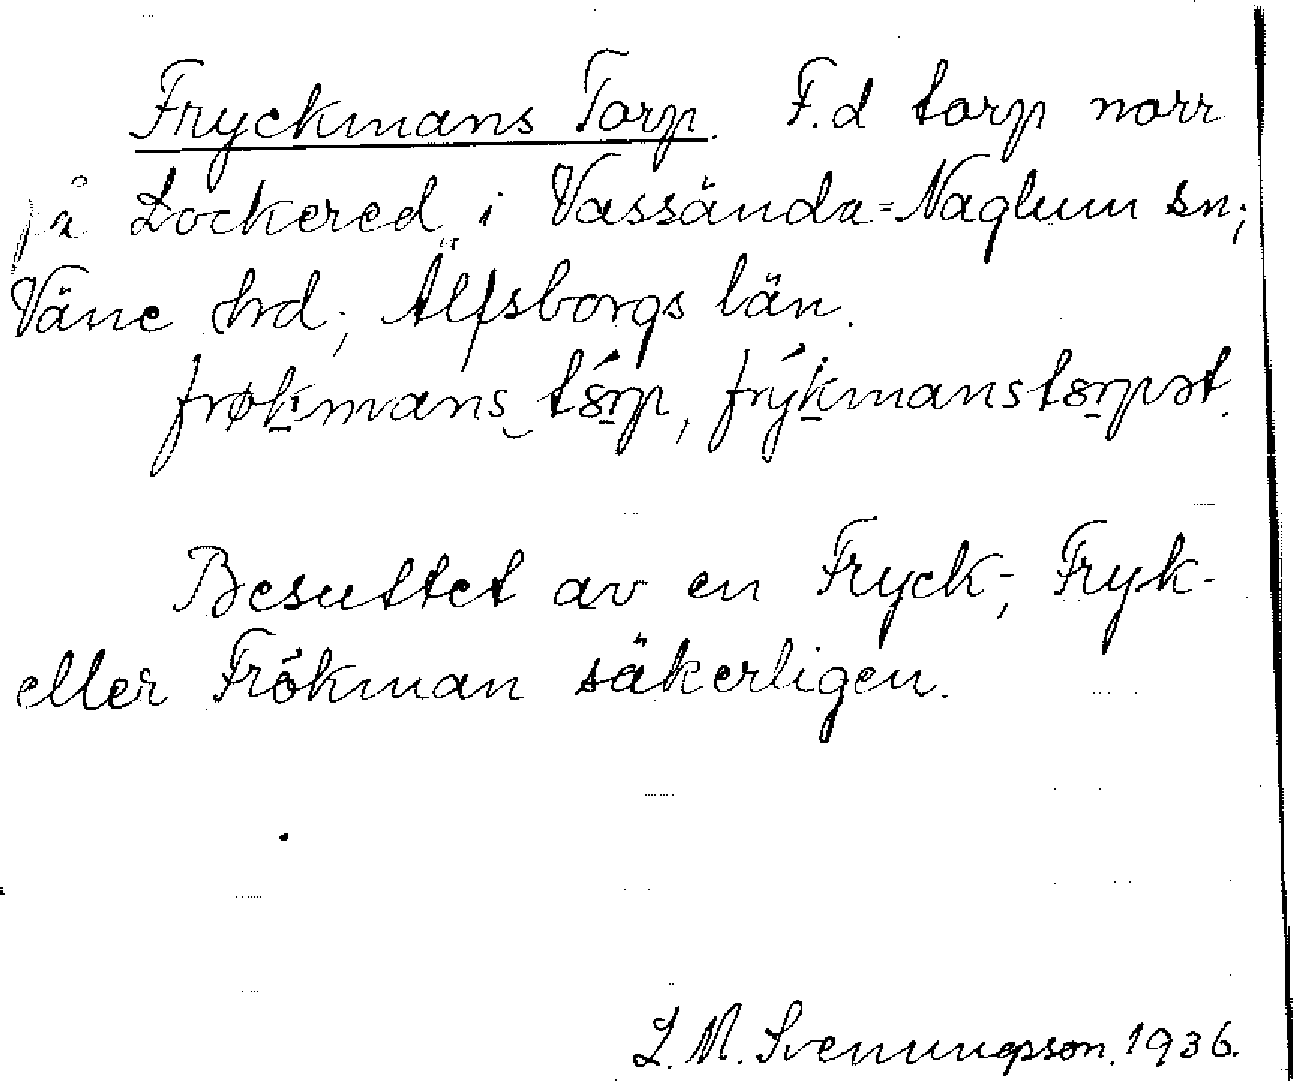 Fryckmans Torp. F.d torp norr
på Lockered i Vassända-Naglum sn;
Väne hrd; Älfsborgs län.
frøkmans tórp, frýkmanstorpət.
Besuttet av en Fryck-, Fryk-
eller Frökman säkerligen.
L. M. Svenungsson. 1936.